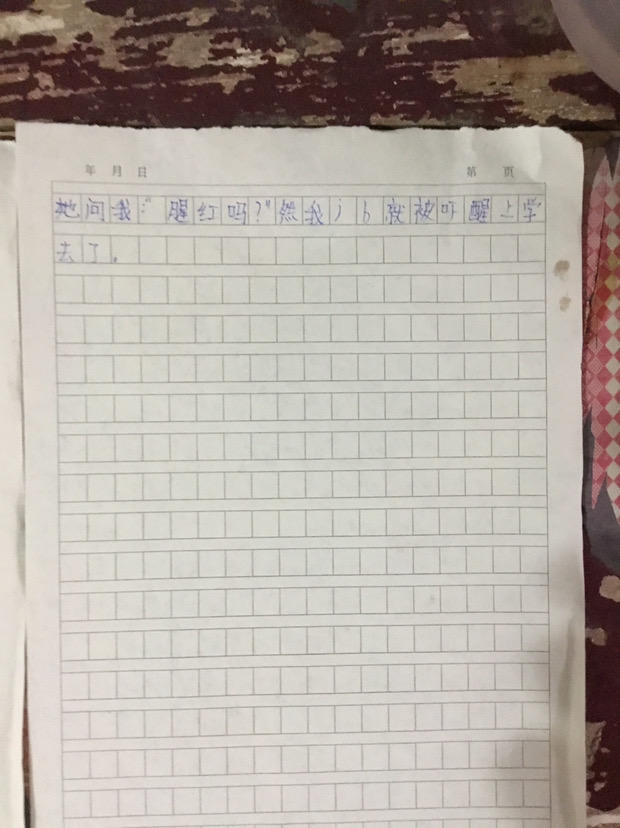 年 月 日 第 页
她问我:"腿红吗?"然我 j b 就被吓醒上学
去了。